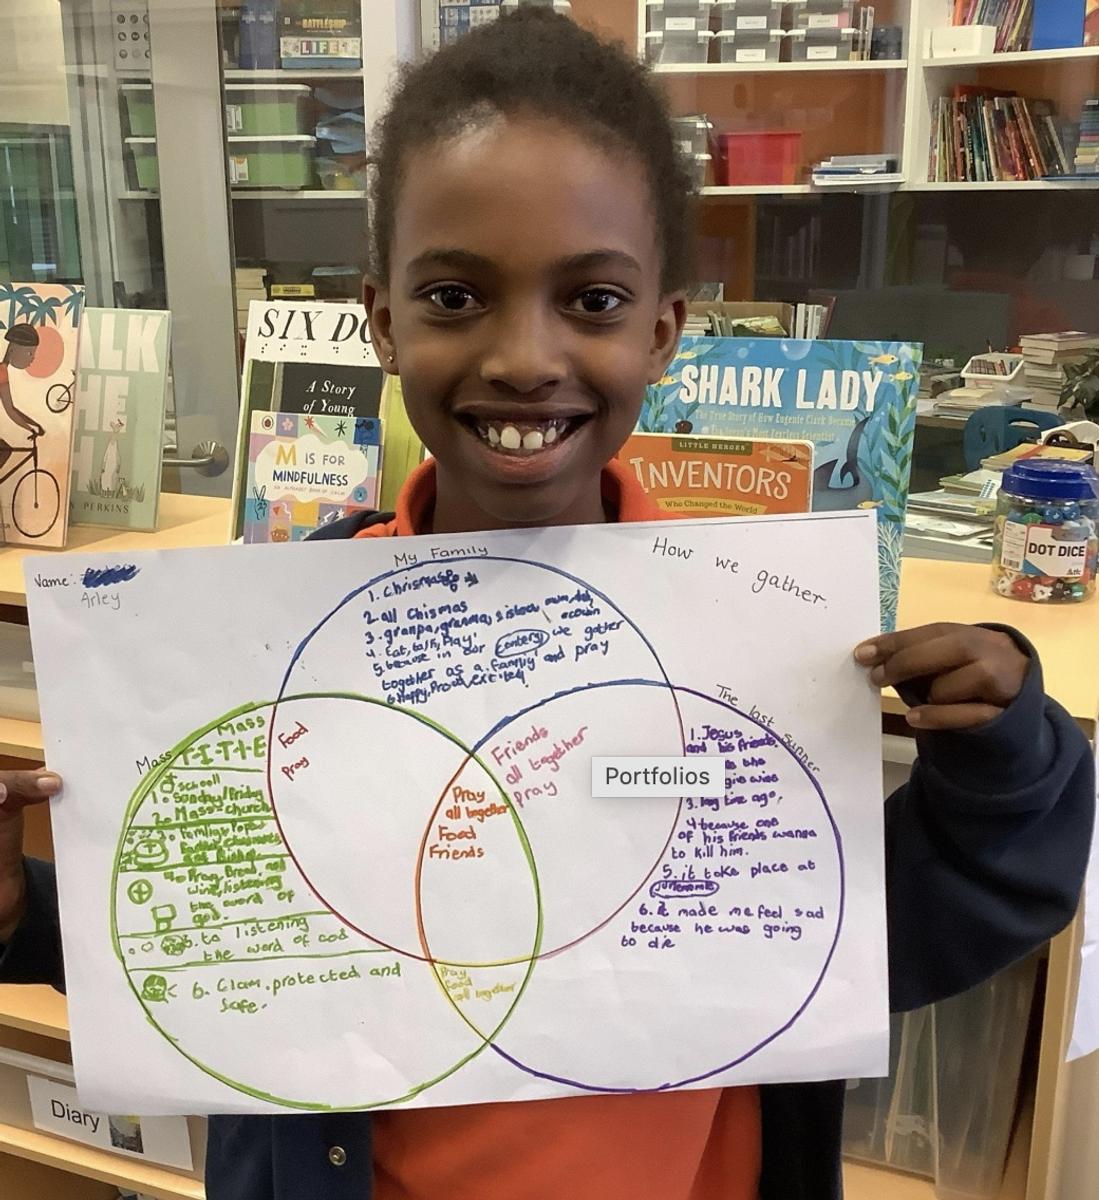 BATTLESHIP
LIFE
SIX DO
A Story
of Young
M IS FOR
MINDFULNESS
ALK
THE
PERKINS
SHARK LADY
The True Story of How Eugenie Clark Became
Most Fearless Scientist
LITTLE HEROES
INVENTORS
Who Changed the World
DOT DICE
Diary
Portfolios
Name:
Arley
How we gather.
My Family
1. Chrismas
2. all Chismas
3. granpa, granma, sister,
4. Eat, talk, Play.
5. because in our contery we gather
together as a family and pray
6. Happy, Proud, excited!
Mass
Mass
T-I-T-L-E
school
1. Sunday/Friday
2. Mass = church
4. Pray, Bread, and
wine, listening
the word of
god.
5. to listening
the word of God
6. Clam, protected and
safe.
Food
Pray
Friends
all together
pray
Pray
all together
Food
Friends
Pray
Food
all together
The last supper
1. Jesus
and his friends.
3. long time ago,
4 because one
of his friends wanna
to kill him.
5. it take place at
6. it made me feel sad
because he was going
to die